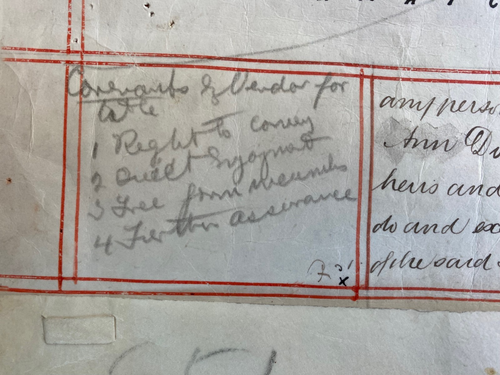 Covenants by Vendor for
title
1 Right to convey
2 Quiet Enjoyment
3 Free from incumbs
4 Further assurance
any perso
Ann Du
heirs and
do and ex
of the said